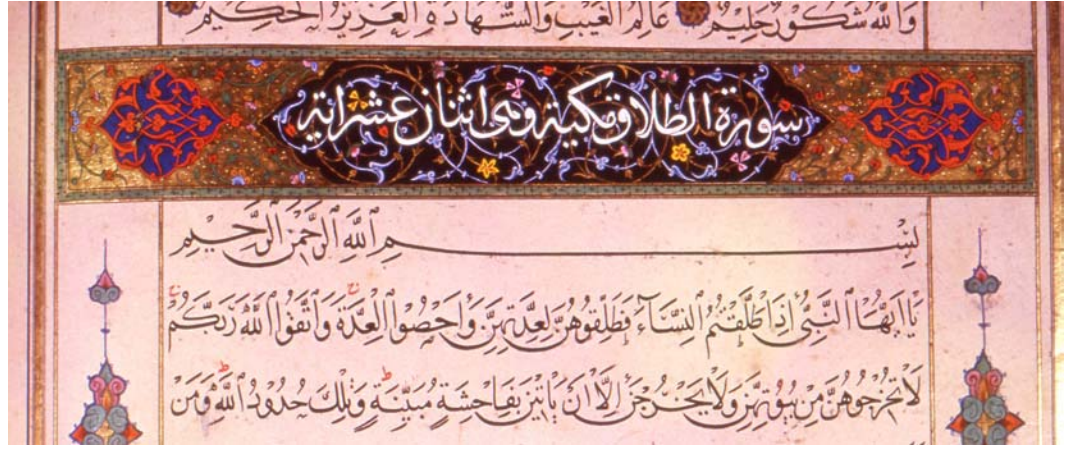 وَاللَّهُ شَكُورٌ حَلِيمٌ عَالِمُ الْغَيْبِ وَالشَّهَادَةِ الْعَزِيزُ الْحَكِيمُ
سورة الطلاق مكية وهى اثنان عشر اية
بِسْمِ ٱللَّهِ ٱلرَّحْمَٰنِ ٱلرَّحِيمِ
يَاأَيُّهَا النَّبِىُّ إِذَا طَلَّقْتُمُ النِّسَآءَ فَطَلِّقُوهُنَّ لِعِدَّتِهِنَّ وَأَحْصُوا الْعِدَّةَ وَاتَّقُوا اللَّهَ رَبَّكُمْ
لَا تُخْرِجُوهُنَّ مِنْ بُيُوتِهِنَّ وَلَا يَخْرُجْنَ إِلَّا أَنْ يَأْتِينَ بِفَاحِشَةٍ مُبَيِّنَةٍ وَتِلْكَ حُدُودُ اللَّهِ وَمَنْ